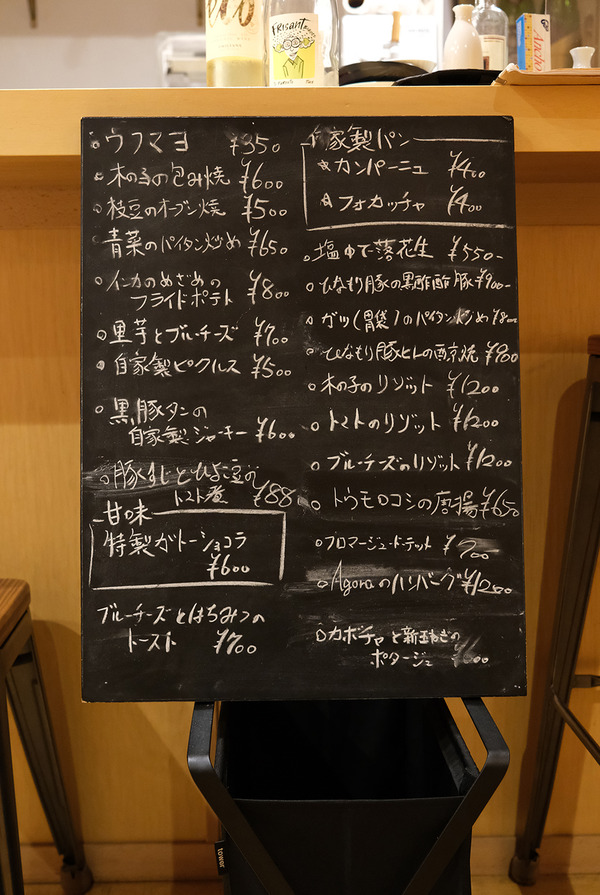 FRiSANT
Ancho
ウフマヨ ¥350
木の子の包み焼 ¥600
枝豆のオーブン焼 ¥500
青菜のパイタン炒め ¥650
インカのめざめの
フライドポテト ¥800
里芋とブルーチーズ ¥700
自家製ピクルス ¥500
黒豚タンの
自家製ジャーキー ¥600
豚すじとひよこ豆の
トマト煮 ¥88
甘味
特製ガトーショコラ
¥600
ブルーチーズとはちみつの
トースト ¥700
自家製パン
カンパーニュ ¥400
フォカッチャ ¥400
塩ゆで落花生 ¥550-
ひなもり豚の黒酢酢豚 ¥900-
ガツ(胃袋)のパイタン炒め ¥800
ひなもり豚ヒレの西京焼 ¥900
木の子のリゾット ¥1200
トマトのリゾット ¥1200
ブルーチーズのリゾット ¥1200
トウモロコシの唐揚 ¥650
フロマージュ・ド・テット ¥900
Agoraのハンバーグ ¥1200
カボチャと新玉ねぎの
ポタージュ ¥600
tower